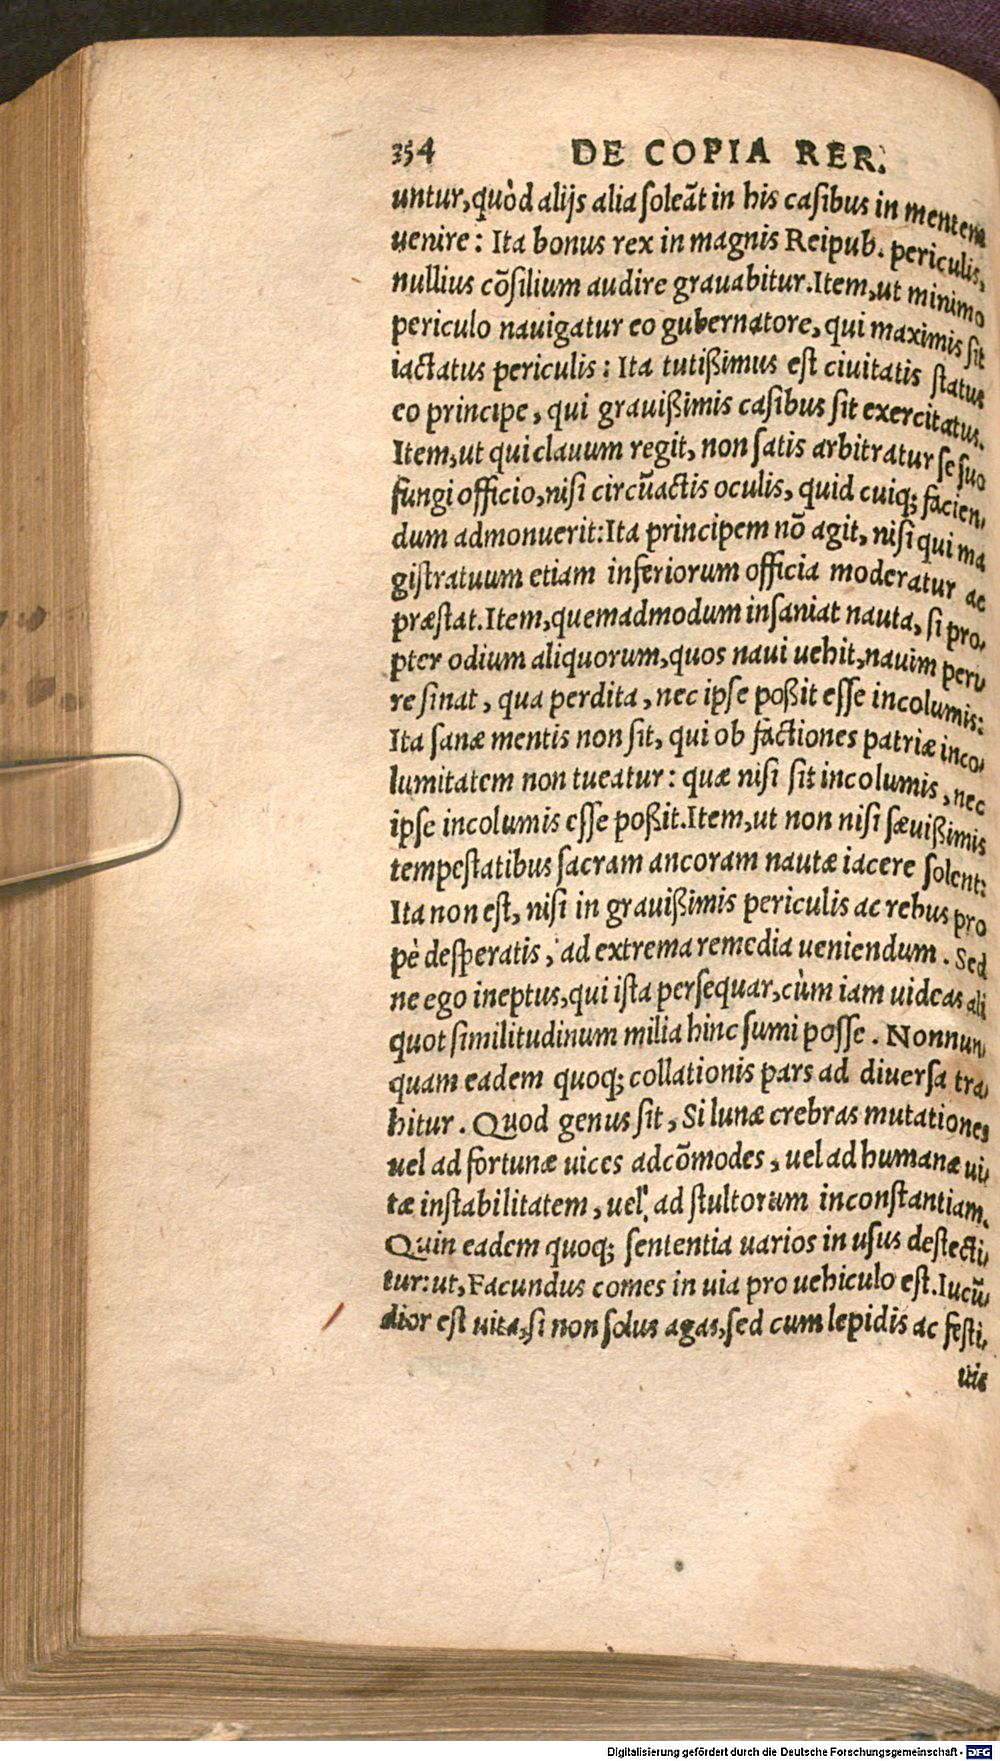 354 DE COPIA RER.
untur, quòd alijs alia soleãt in his casibus in mentem
uenire: Ita bonus rex in magnis Reipub. periculis,
nullius cõsilium audire grauabitur. Item, ut minimo
periculo nauigatur eo gubernatore, qui maximis sit
iactatus periculis: Ita tutißimus est ciuitatis status
eo principe, qui grauißimis casibus sit exercitatus.
Item, ut qui clauum regit, non satis arbitratur se suo
fungi officio, nisi circũactis oculis, quid cuiq; facien,
dum admonuerit: Ita principem nõ agit, nisi qui ma
gistratuum etiam inferiorum officia moderatur ac
præstat. Item, quemadmodum insaniat nauta, si pro,
pter odium aliquorum, quos naui uehit, nauim peri
re sinat, qua perdita, nec ipse poßit esse incolumis:
Ita sanæ mentis non sit, qui ob factiones patriæ inco,
lumitatem non tueatur: quæ nisi sit incolumis, nec
ipse incolumis esse poßit. Item, ut non nisi sæuißimis
tempestatibus sacram ancoram nautæ iacere solent:
Ita non est, nisi in grauißimis periculis ac rebus pro
pè desperatis, ad extrema remedia ueniendum. Sed
ne ego ineptus, qui ista persequar, cùm iam uideas ali
quot similitudinum milia hinc sumi posse. Nonnun,
quam eadem quoq; collationis pars ad diuersa tra,
hitur. Quod genus sit, Si lunæ crebras mutationes
uel ad fortunæ uices adcõmodes, uel ad humanæ ui,
tæ instabilitatem, uel ad stultorum inconstantiam.
Quin eadem quoq; sententia uarios in usus deflecti,
tur: ut, Facundus comes in uia pro uehiculo est. Iucũ,
dior est uita, si non solus agas, sed cum lepidis ac festi,
uis
Digitalisierung gefördert durch die Deutsche Forschungsgemeinschaft - DFG